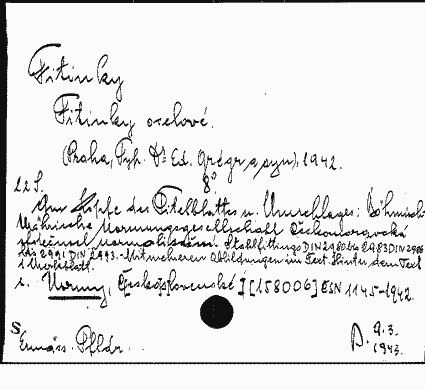 Fitinky
Fitinky ocelové.
(Praha, Typ. Dr Ed. Grégr a syn), 1942.
8°
22 S.
Am Kopfe des Titelblattes u. Umschlages: Böhmisch-
Mährische Normungsgesellschaft Českomoravská
společnost normalisační. Stahlfittings DIN 2980 bis 2983 DIN 2986
bis 2991 DIN 2993. - Mit mehreren Abbildungen im Text. Hinter dem Text
1 Werkblatt.
s. Normy, Československé I [158006] ČSN 1145-1942.
S
9.3.
1943.